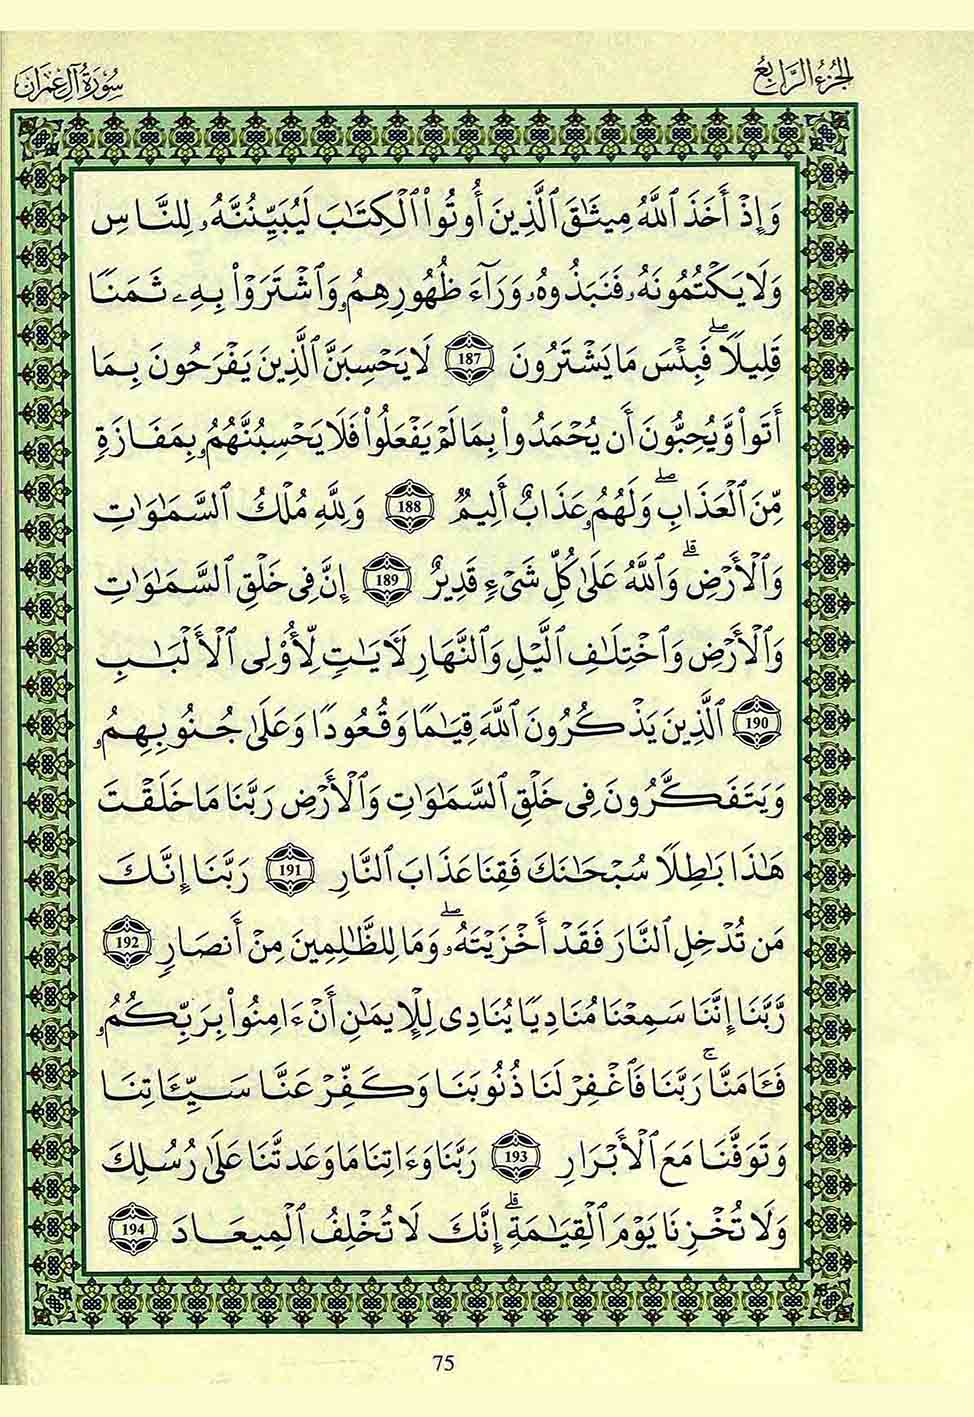 الجزء الرابع
سورة آل عمران
وَإِذْ أَخَذَ ٱللَّهُ مِيثَٰقَ ٱلَّذِينَ أُوتُوا۟ ٱلْكِتَٰبَ لَيُبَيِّنُنَّهُۥ لِلنَّاسِ
وَلَا يَكْتُمُونَهُۥ فَنَبَذُوهُۥ وَرَآءَ ظُهُورِهِمُۥ وَٱشْتَرَوْا۟ بِهِۦ ثَمَنًا
قَلِيلًاۖ فَبِئْسَ مَا يَشْتَرُونَ 187 لَا يَحْسِبَنَّ ٱلَّذِينَ يَفْرَحُونَ بِمَا
أَتَوا۟ وَّيُحِبُّونَ أَن يُحْمَدُوا۟ بِمَا لَمْ يَفْعَلُوا۟ فَلَا يَحْسِبُنَّهُمُۥ بِمَفَازَةٍ
مِّنَ ٱلْعَذَابِۖ وَلَهُمُۥ عَذَابٌ أَلِيمٌ 188 وَلِلَّهِ مُلْكُ ٱلسَّمَٰوَٰتِ
وَٱلْأَرْضِۗ وَٱللَّهُ عَلَىٰ كُلِّ شَىْءٍ قَدِيرٌ 189 إِنَّ فِى خَلْقِ ٱلسَّمَٰوَٰتِ
وَٱلْأَرْضِ وَٱخْتِلَٰفِ ٱلَّيْلِ وَٱلنَّهَارِ لَأٓيَٰتٍ لِّأُو۟لِى ٱلْأَلْبَٰبِ
190 ٱلَّذِينَ يَذْكُرُونَ ٱللَّهَ قِيَٰمًا وَقُعُودًا وَعَلَىٰ جُنُوبِهِمُۥ
وَيَتَفَكَّرُونَ فِى خَلْقِ ٱلسَّمَٰوَٰتِ وَٱلْأَرْضِ رَبَّنَا مَا خَلَقْتَ
هَٰذَا بَٰطِلًا سُبْحَٰنَكَ فَقِنَا عَذَابَ ٱلنَّارِ 191 رَبَّنَا إِنَّكَ
مَن تُدْخِلِ ٱلنَّارَ فَقَدْ أَخْزَيْتَهُۥۖ وَمَا لِلظَّٰلِمِينَ مِنْ أَنصَارٍ 192
رَّبَّنَا إِنَّنَا سَمِعْنَا مُنَادِيًا يُنَادِى لِلْإِيمَٰنِ أَنْ ءَامِنُوا۟ بِرَبِّكُمُۥ
فَـَٔامَنَّاۚ رَبَّنَا فَٱغْفِرْ لَنَا ذُنُوبَنَا وَكَفِّرْ عَنَّا سَيِّـَٔاتِنَا
وَتَوَفَّنَا مَعَ ٱلْأَبْرَارِ 193 رَبَّنَا وَءَاتِنَا مَا وَعَدتَّنَا عَلَىٰ رُسُلِكَ
وَلَا تُخْزِنَا يَوْمَ ٱلْقِيَٰمَةِۗ إِنَّكَ لَا تُخْلِفُ ٱلْمِيعَادَ 194
75